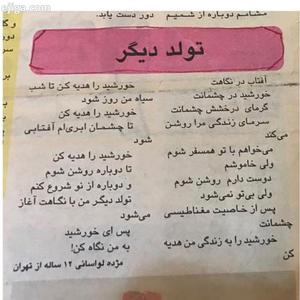 eliga.com
مشامم دوباره از شمیم
دور دست یابد.
تولد دیگر
آفتاب در نگاهت
خورشید در چشمانت
گرمای درخشش چشمانت
سرمای زندگی مرا روشن
می‌کند
می‌خواهم با تو همسفر شوم
ولی خاموشم
دوست دارم روشن شوم
ولی بی‌تو نمی‌شود
پس از خاصیت مغناطیسی
چشمانت
خورشید را به زندگی من هدیه
کن
خورشید را هدیه کن تا شب
سیاه من روز شود
خورشید را هدیه کن
تا چشمان ابری‌ام آفتابی
شود
خورشید را هدیه کن
تا دوباره روشن شوم
و دوباره از نو شروع کنم
تولد دیگر من با نگاهت آغاز
می‌شود
پس ای خورشید
به من نگاه کن!
مژده لواسانی ۱۲ ساله از تهران